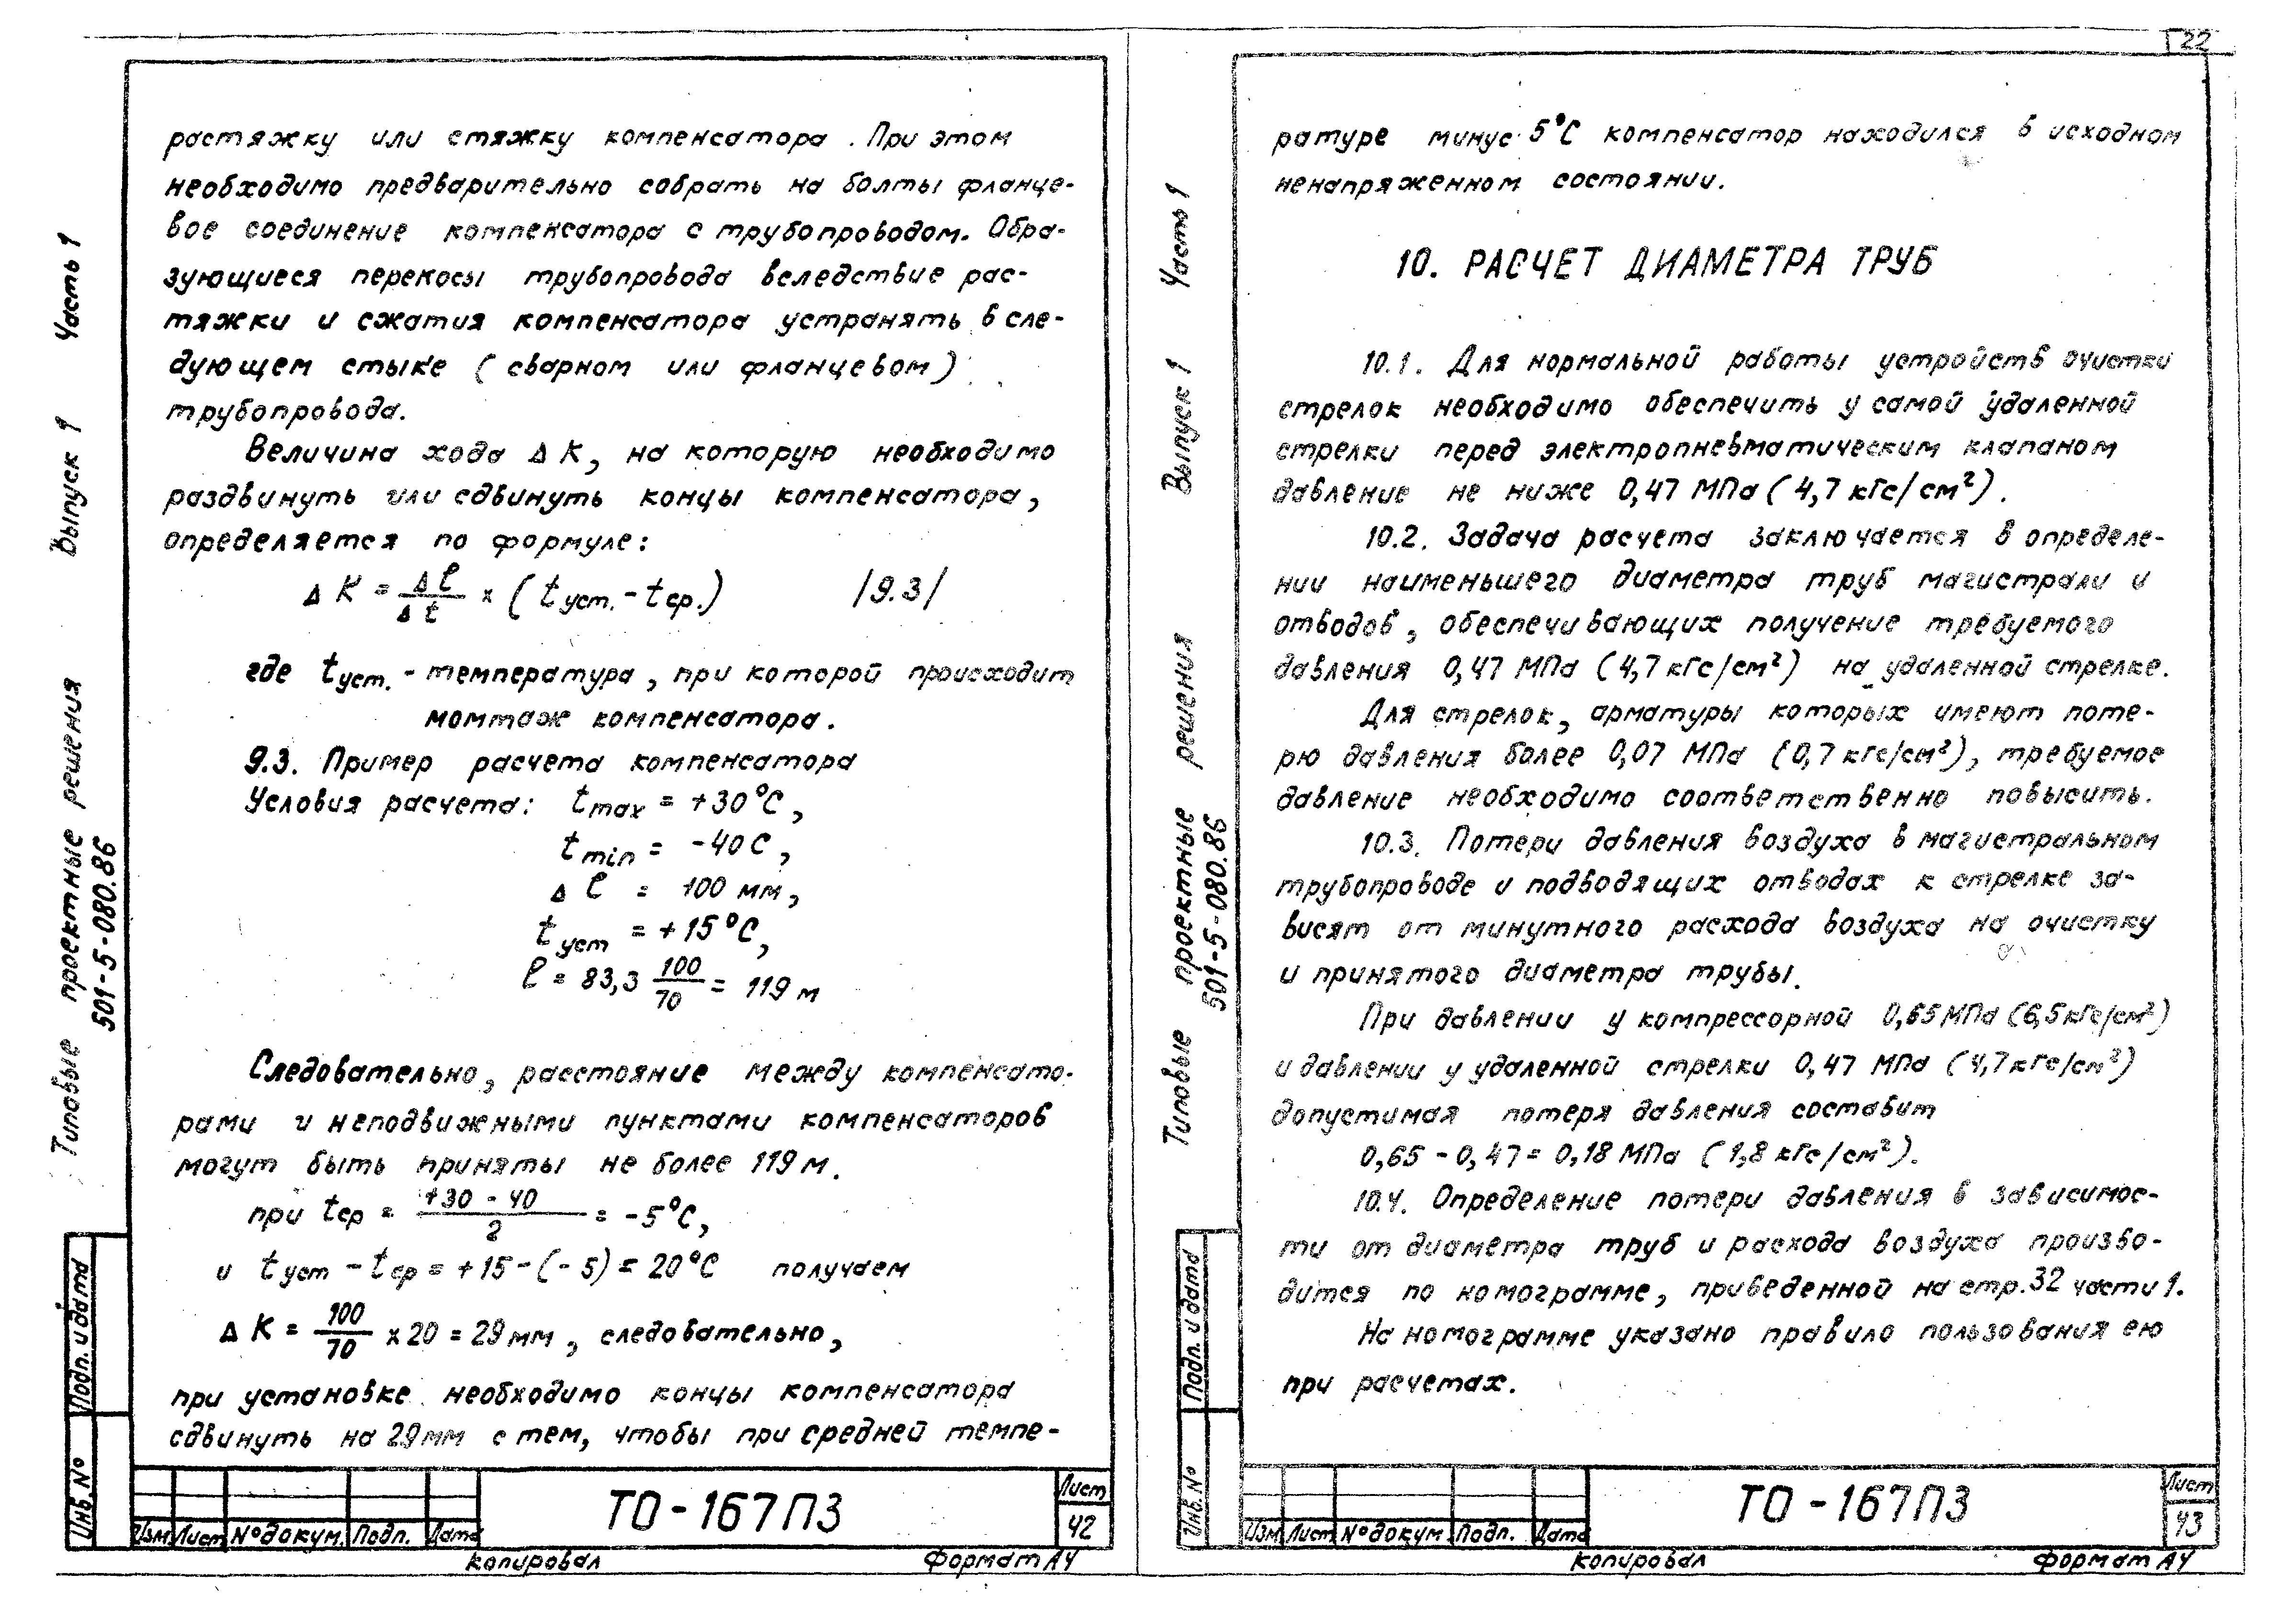 22
растяжку или стяжку компенсатора. При этом
необходимо предварительно собрать на болты фланце-
вое соединение компенсатора с трубопроводом. Обра-
зующиеся перекосы трубопровода вследствие рас-
тяжки и сжатия компенсатора устранять в сле-
дующем стыке (сварном или фланцевом)
трубопровода.
Величина хода Δ К, на которую необходимо
раздвинуть или сдвинуть концы компенсатора,
определяется по формуле:
Δ К = Δℓ/Δt х (t уст. - t ср.) /9.3/
где t уст. - температура, при которой происходит
монтаж компенсатора.
9.3. Пример расчета компенсатора
Условия расчета: t max = +30°С,
t min = -40С,
Δ ℓ = 100 мм,
t уст = +15°С,
ℓ = 83,3 100/70 = 119 м
Следовательно, расстояние между компенсато-
рами и неподвижными пунктами компенсаторов
могут быть приняты не более 119 м.
при t ср = +30 - 40/2 = -5°С,
и t уст - t ср = +15-(-5) = 20°С получаем
Δ К = 100/70 х 20 = 29 мм, следовательно,
при установке необходимо концы компенсатора
сдвинуть на 29 мм с тем, чтобы при средней темпе-
Типовые проектные решения Выпуск 1 Часть 1
501-5-080.86
Подп. и дата
Инв. №
Изм Лист № докум. Подп. Дата
ТО-167ПЗ
Лист
42
копировал Формат А4
ратуре минус 5°С компенсатор находился в исходном
ненапряженном состоянии.
10. РАСЧЕТ ДИАМЕТРА ТРУБ
10.1. Для нормальной работы устройств очистки
стрелок необходимо обеспечить у самой удаленной
стрелки перед электропневматическим клапаном
давление не ниже 0,47 МПа (4,7 кГс/см²).
10.2. Задача расчета заключается в определе-
нии наименьшего диаметра труб магистрали и
отводов, обеспечивающих получение требуемого
давления 0,47 МПа (4,7 кГс/см²) на удаленной стрелке.
Для стрелок, арматуры которых имеют поте-
рю давления более 0,07 МПа (0,7 кГс/см²), требуемое
давление необходимо соответственно повысить.
10.3. Потери давления воздуха в магистральном
трубопроводе и подводящих отводах к стрелке за-
висят от минутного расхода воздуха на очистку
и принятого диаметра трубы.
При давлении у компрессорной 0,65 МПа (6,5 кГс/см²)
и давлении у удаленной стрелки 0,47 МПа (4,7 кГс/см²)
допустимая потеря давления составит
0,65 - 0,47 = 0,18 МПа (1,8 кГс/см²).
10.4. Определение потери давления в зависимос-
ти от диаметра труб и расхода воздуха произво-
дится по номограмме, приведенной на стр. 32 части 1.
На номограмме указано правило пользования ею
при расчетах.
Типовые проектные решения Выпуск 1 Часть 1
501-5-080.86
Подп. и дата
Инв. №
Изм Лист № докум. Подп. Дата
ТО-167ПЗ
Лист
43
копировал Формат А4